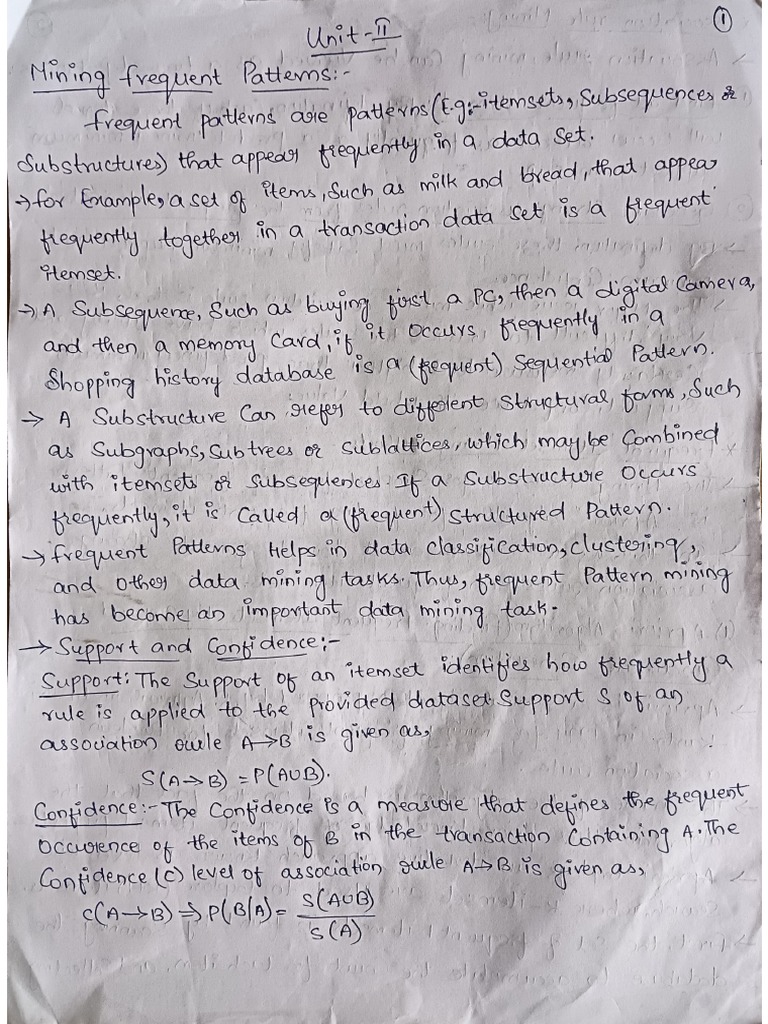 ①
Unit-II
Mining frequent Patterns:-
frequent patterns are patterns (E.g:-itemsets, Subsequences or
Substructures) that appear frequently in a data set.
→ for Example, a set of items, Such as milk and bread, that appear
frequently together in a transaction data set is a frequent
itemset.
→ A Subsequence, Such as buying first a PC, then a digital Camera,
and then a memory Card, if it occurs frequently in a
Shopping history database is a (frequent) Sequential Pattern.
→ A Substructure Can refer to different Structural forms, Such
as Subgraphs, Subtrees or Sublattices, which may be Combined
with itemsets or Subsequences. If a Substructure Occurs
frequently, it is Called a (frequent) Structured Pattern.
→ frequent Patterns Helps in data classification, clustering,
and other data mining tasks. Thus, frequent Pattern mining
has become an important data mining task.
→ Support and Confidence:-
Support: The Support of an itemset identifies how frequently a
rule is applied to the provided dataset. Support S of an
association rule A→B is given as,
S(A→B) = P(A∪B).
Confidence:- The Confidence is a measure that defines the frequent
Occurence of the items of B in the transaction Containing A. The
Confidence (C) level of association rule A→B is given as,
C(A→B) ⇒ P(B/A) = S(A∪B)
S(A)